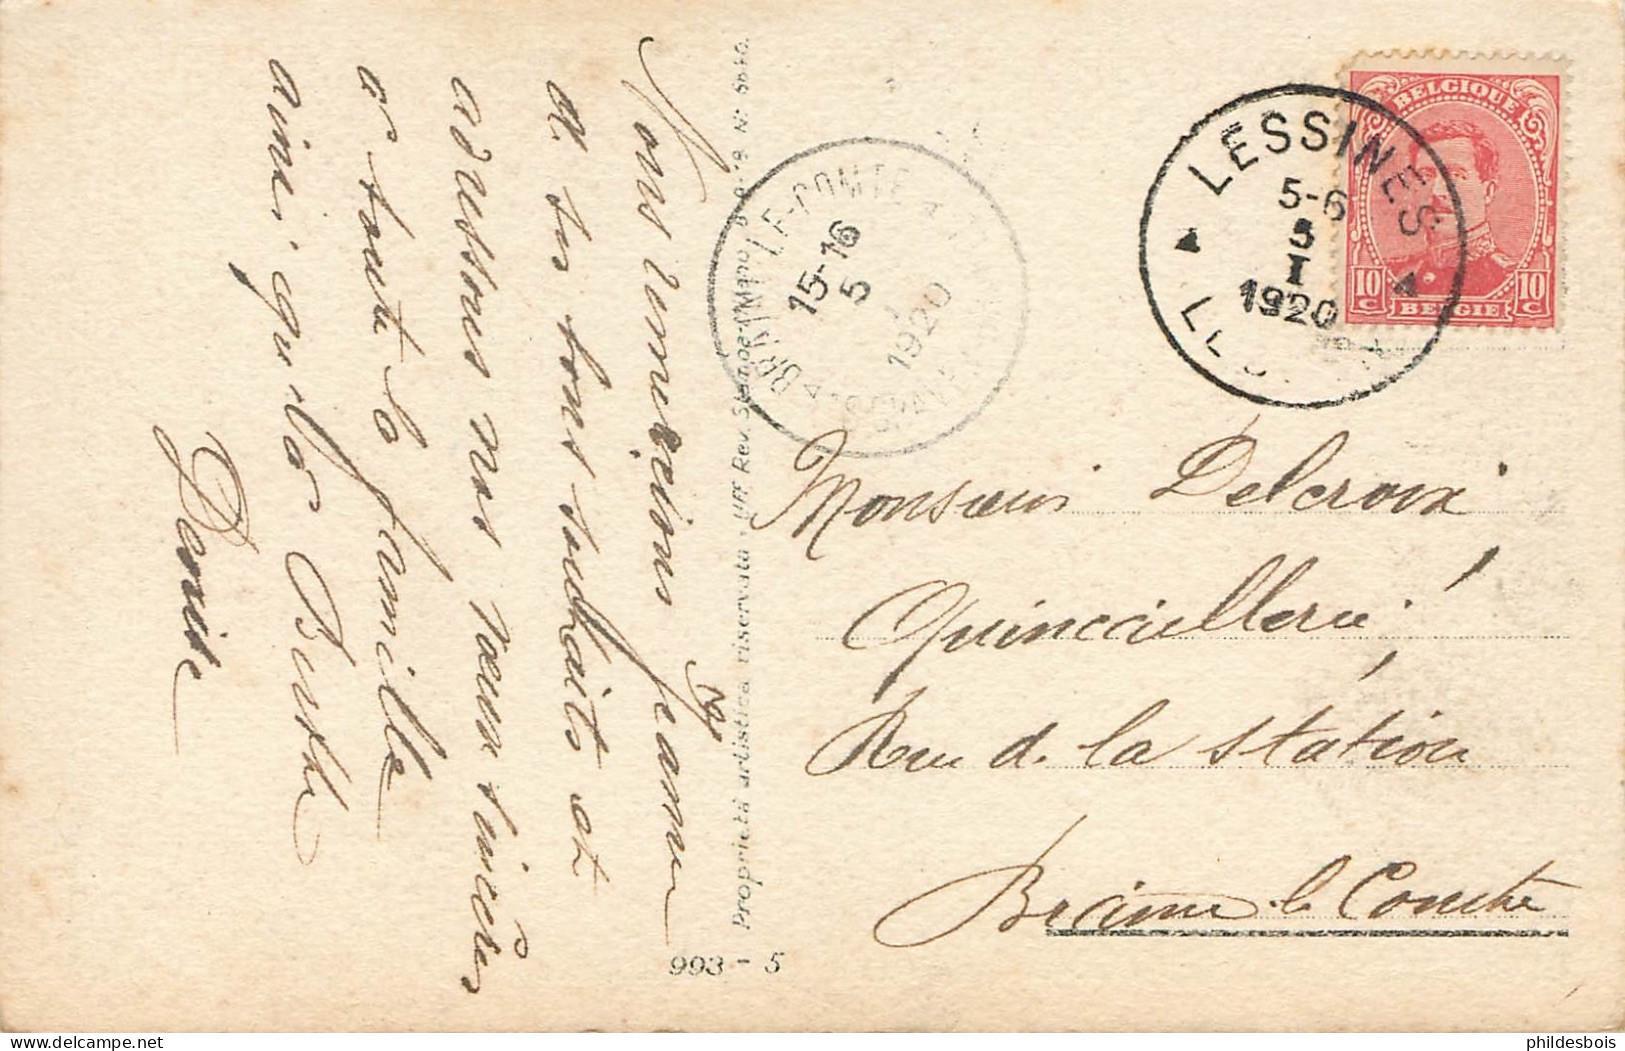 Nous remercions Jeanne
de ses bons souhaits et
adressons nos vœux sincères
à toute la famille
ainsi qu'à
Denise
Proprietà artistica riservata - Uff. Rev. Stampa-Milano
993 - 5
BRAINE-LE-COMTE
15-16
5
1920
LESSINES
5-6
5
I
1920
BELGIQUE
10 C
10 C
BELGIE
Monsieur Delcroix
Quincaillerie
Rue de la Station
Braine-le-Comte
phildesbois